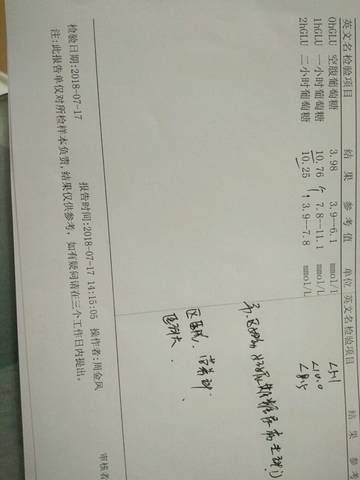 英文名 检验项目 结 果 参 考 值 单位 英文名 检验项目 结 果 参 考
0hGLU 空腹葡萄糖 3.98 3.9-6.1 mmol/L <5.1
1hGLU 一小时葡萄糖 10.76 7.8-11.1 mmol/L <10.0
2hGLU 二小时葡萄糖 10.25 ↑ 3.9-7.8 mmol/L <8.5
检验日期:2018-07-17 报告时间:2018-07-17 14:15:05 操作者:周金凤 审核者
注:此报告单仅对所检样本负责,结果仅供参考,如有疑问请在三个工作日内提出。